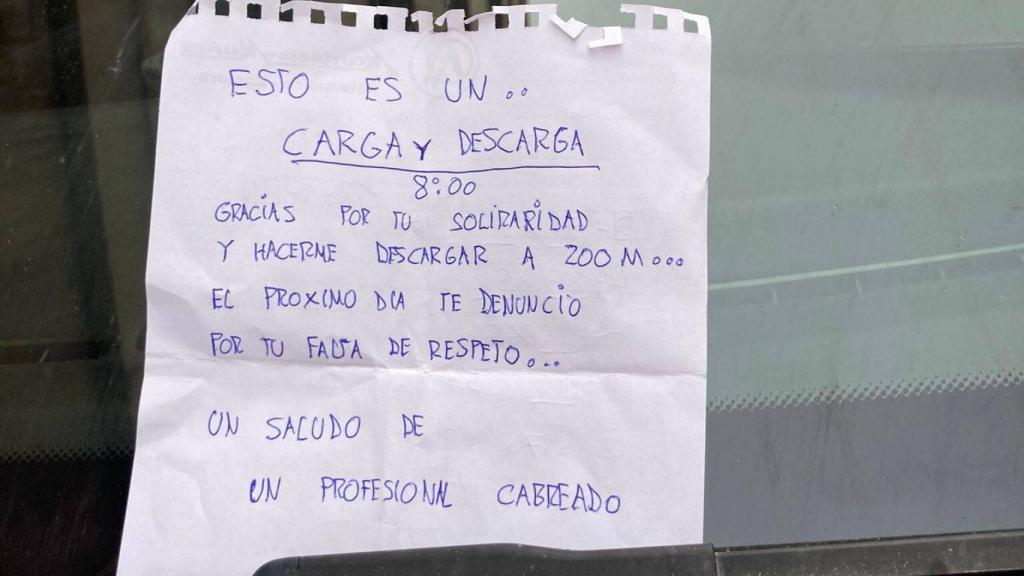 ESTO ES UN..
CARGA Y DESCARGA
8:00
GRACIAS POR TU SOLIDARIDAD
Y HACERME DESCARGAR A 200 M...
EL PROXIMO DIA TE DENUNCIO
POR TU FALTA DE RESPETO...
UN SALUDO DE
UN PROFESIONAL CABREADO